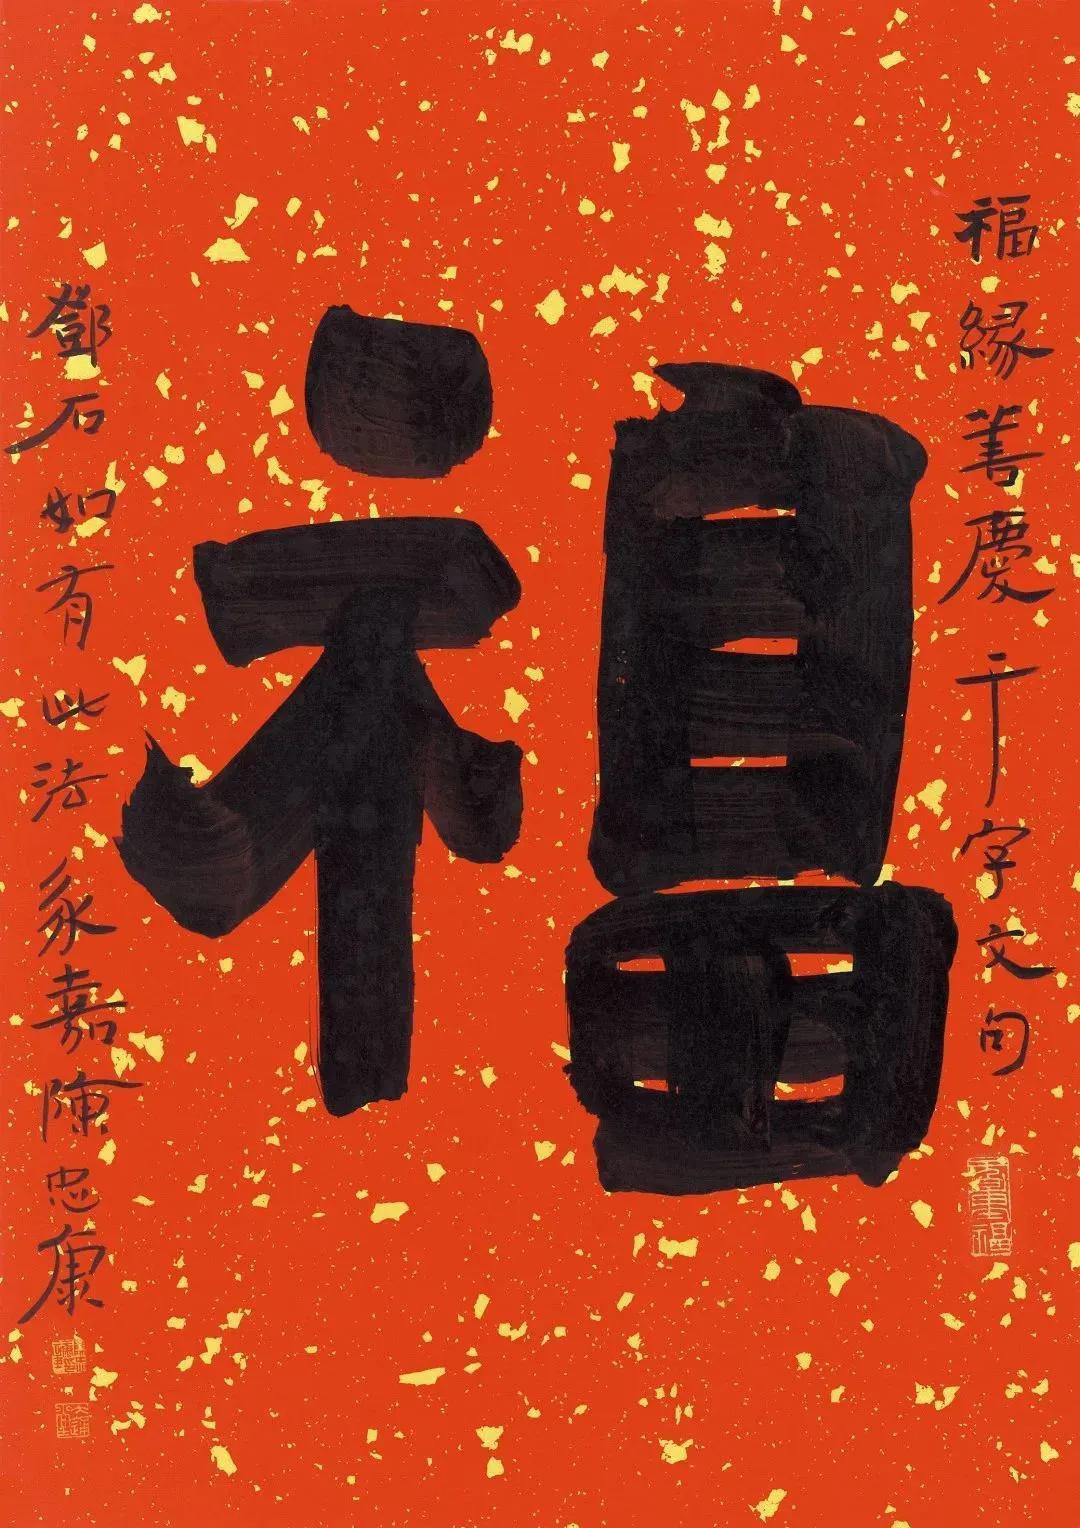 福緣善慶千字文句
福
鄧石如有此法永嘉陳忠康